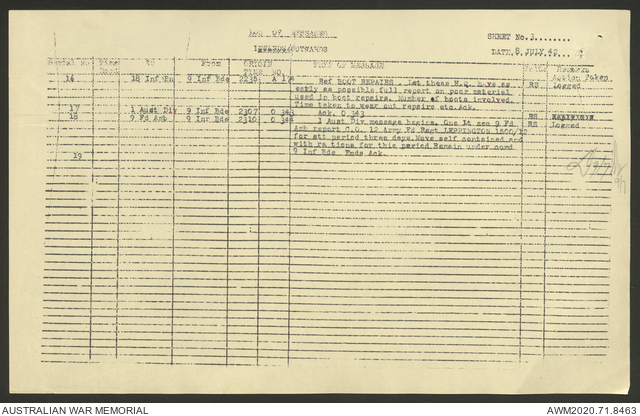 LOG OF MESSAGES
INWARDS/OUTWARDS
SHEET No. 3........
DATE 8 JULY 42
Serial No Time To From ORIGIN TEXT OF MESSAGE Remarks
TIME NO. Action Taken
16 18 Inf Bn 9 Inf Bde 2235 A 174 Ref BOOT REPAIRS . Let these H.Q. have as RS Logged
early as possible full report on poor material
used in boot repairs. Number of boots involved.
Time taken to wear out repairs etc.Ack.
17 1 Aust Div 9 Inf Bde 2307 O 345 Ack. O 343 RS
18 9 Fd Amb 9 Inf Bde 2310 O 346 1 Aust Div message begins. One Lt sec 9 Fd RS Logged
Amb report C.O. 12 Army Fd Regt LEPPINGTON 1800/12
for att period three days.Move self contained and
with rations for this period Remain under comd
9 Inf Bde Ends Ack.
19
AUSTRALIAN WAR MEMORIAL
AWM2020.71.8463